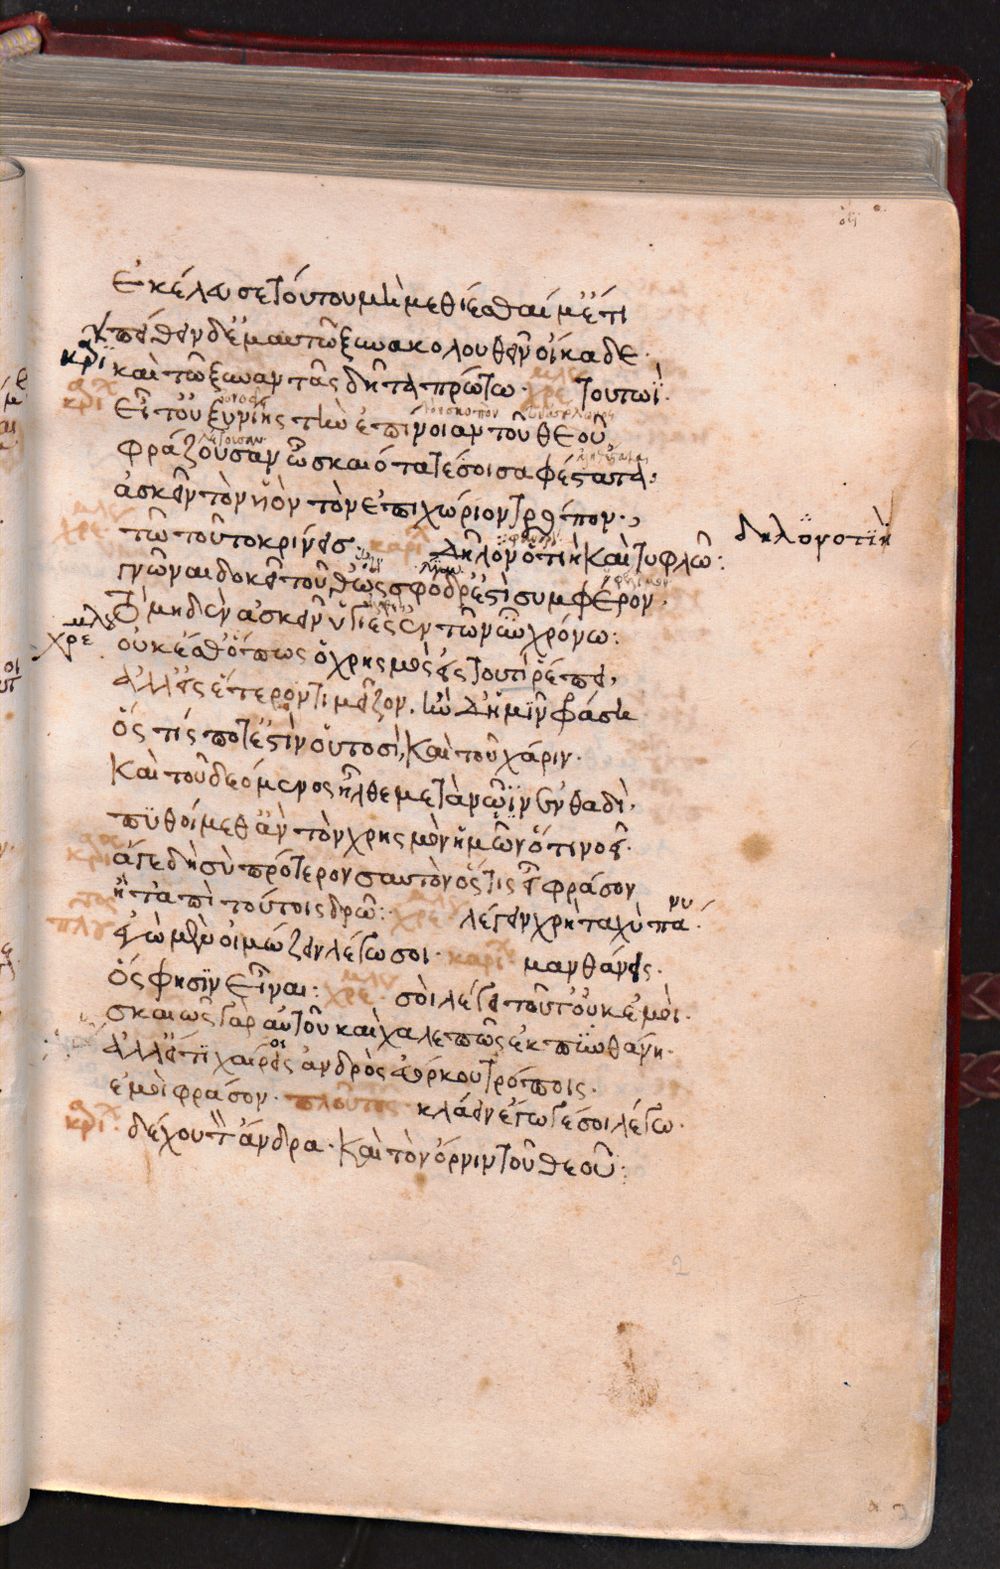 ἐκέλευσε τούτου μὴ μεθίεσθαί μ' ἔτι
πείθειν δ' ἐμαυτῶ ξυνακολουθεῖν οἴκαδε·
καρί
καὶ τῶ ξυναντᾶς δῆτα πρώτω· χρε τουτωΐ·
καρί
εἶτ' οὐ ξυνίης τὴν ἐπίνοιαν τοῦ θεοῦ
φράζουσαν ὦ σκαιότατέ σοι σαφέστατα·
ἀσκεῖν τὸν υἱὸν τὸν ἐπιχώριον τρόπον·
χρε
τῶ τοῦτο κρίνεισ· καρί δῆλον ὁτιὴ καὶ τυφλῶ:
δηλονοτιὴ
γνῶναι δοκεῖ τοῦθ' ὡς σφόδρ' ἐστὶ συμφέρον·
τὸ μηδὲν ἀσκεῖν ὑγιὲς ἐν τῶ νῦν χρόνω:
χρε
οὐκ ἔσθ' ὅπως ὁ χρησμὸς εἰς τοῦτο ῥέπει,
ἀλλ' εἰς ἕτερόν τι μεῖζον. ἢν δ' ἡμῖν φράση
ὅς τίς ποτ' ἐστὶν οὑτοσὶ, καὶ τοῦ χάριν·
καὶ τοῦ δεόμενος ἦλθε μετὰ νῶϊν ἐνθαδὶ,
πυθοίμεθ' ἂν τὸν χρησμὸν ἡμῶν ὅτι νοεῖ·
καρί
ἄγε δὴ σὺ πρότερον σαυτὸν ὅστις εἶ φράσον
ἢ τἀπὶ τούτοις δρῶ: χρε λέγειν χρὴ ταχὺ πάνυ·
πλου
ἐγὼ μὲν οἰμώζειν λέγω σοι· καρί μανθάνεις·
ὅς φησὶν εἶναι: χρε· σοὶ λέγει τοῦτ' οὐκ ἐμοὶ·
σκαιῶς γὰρ αὐτοῦ καὶ χαλεπῶς ἐκπυνθάνη·
ἀλλ' εἴ τι χαίρεις ἀνδρὸς εὐόρκου τρόποις·
ἐμοὶ φράσον· πλοῦτος· κλάειν ἔγωγέ σοι λέγω·
καρί
δέχου τὸν ἄνδρα· καὶ τὸν ὄρνιν τοῦ θεοῦ: